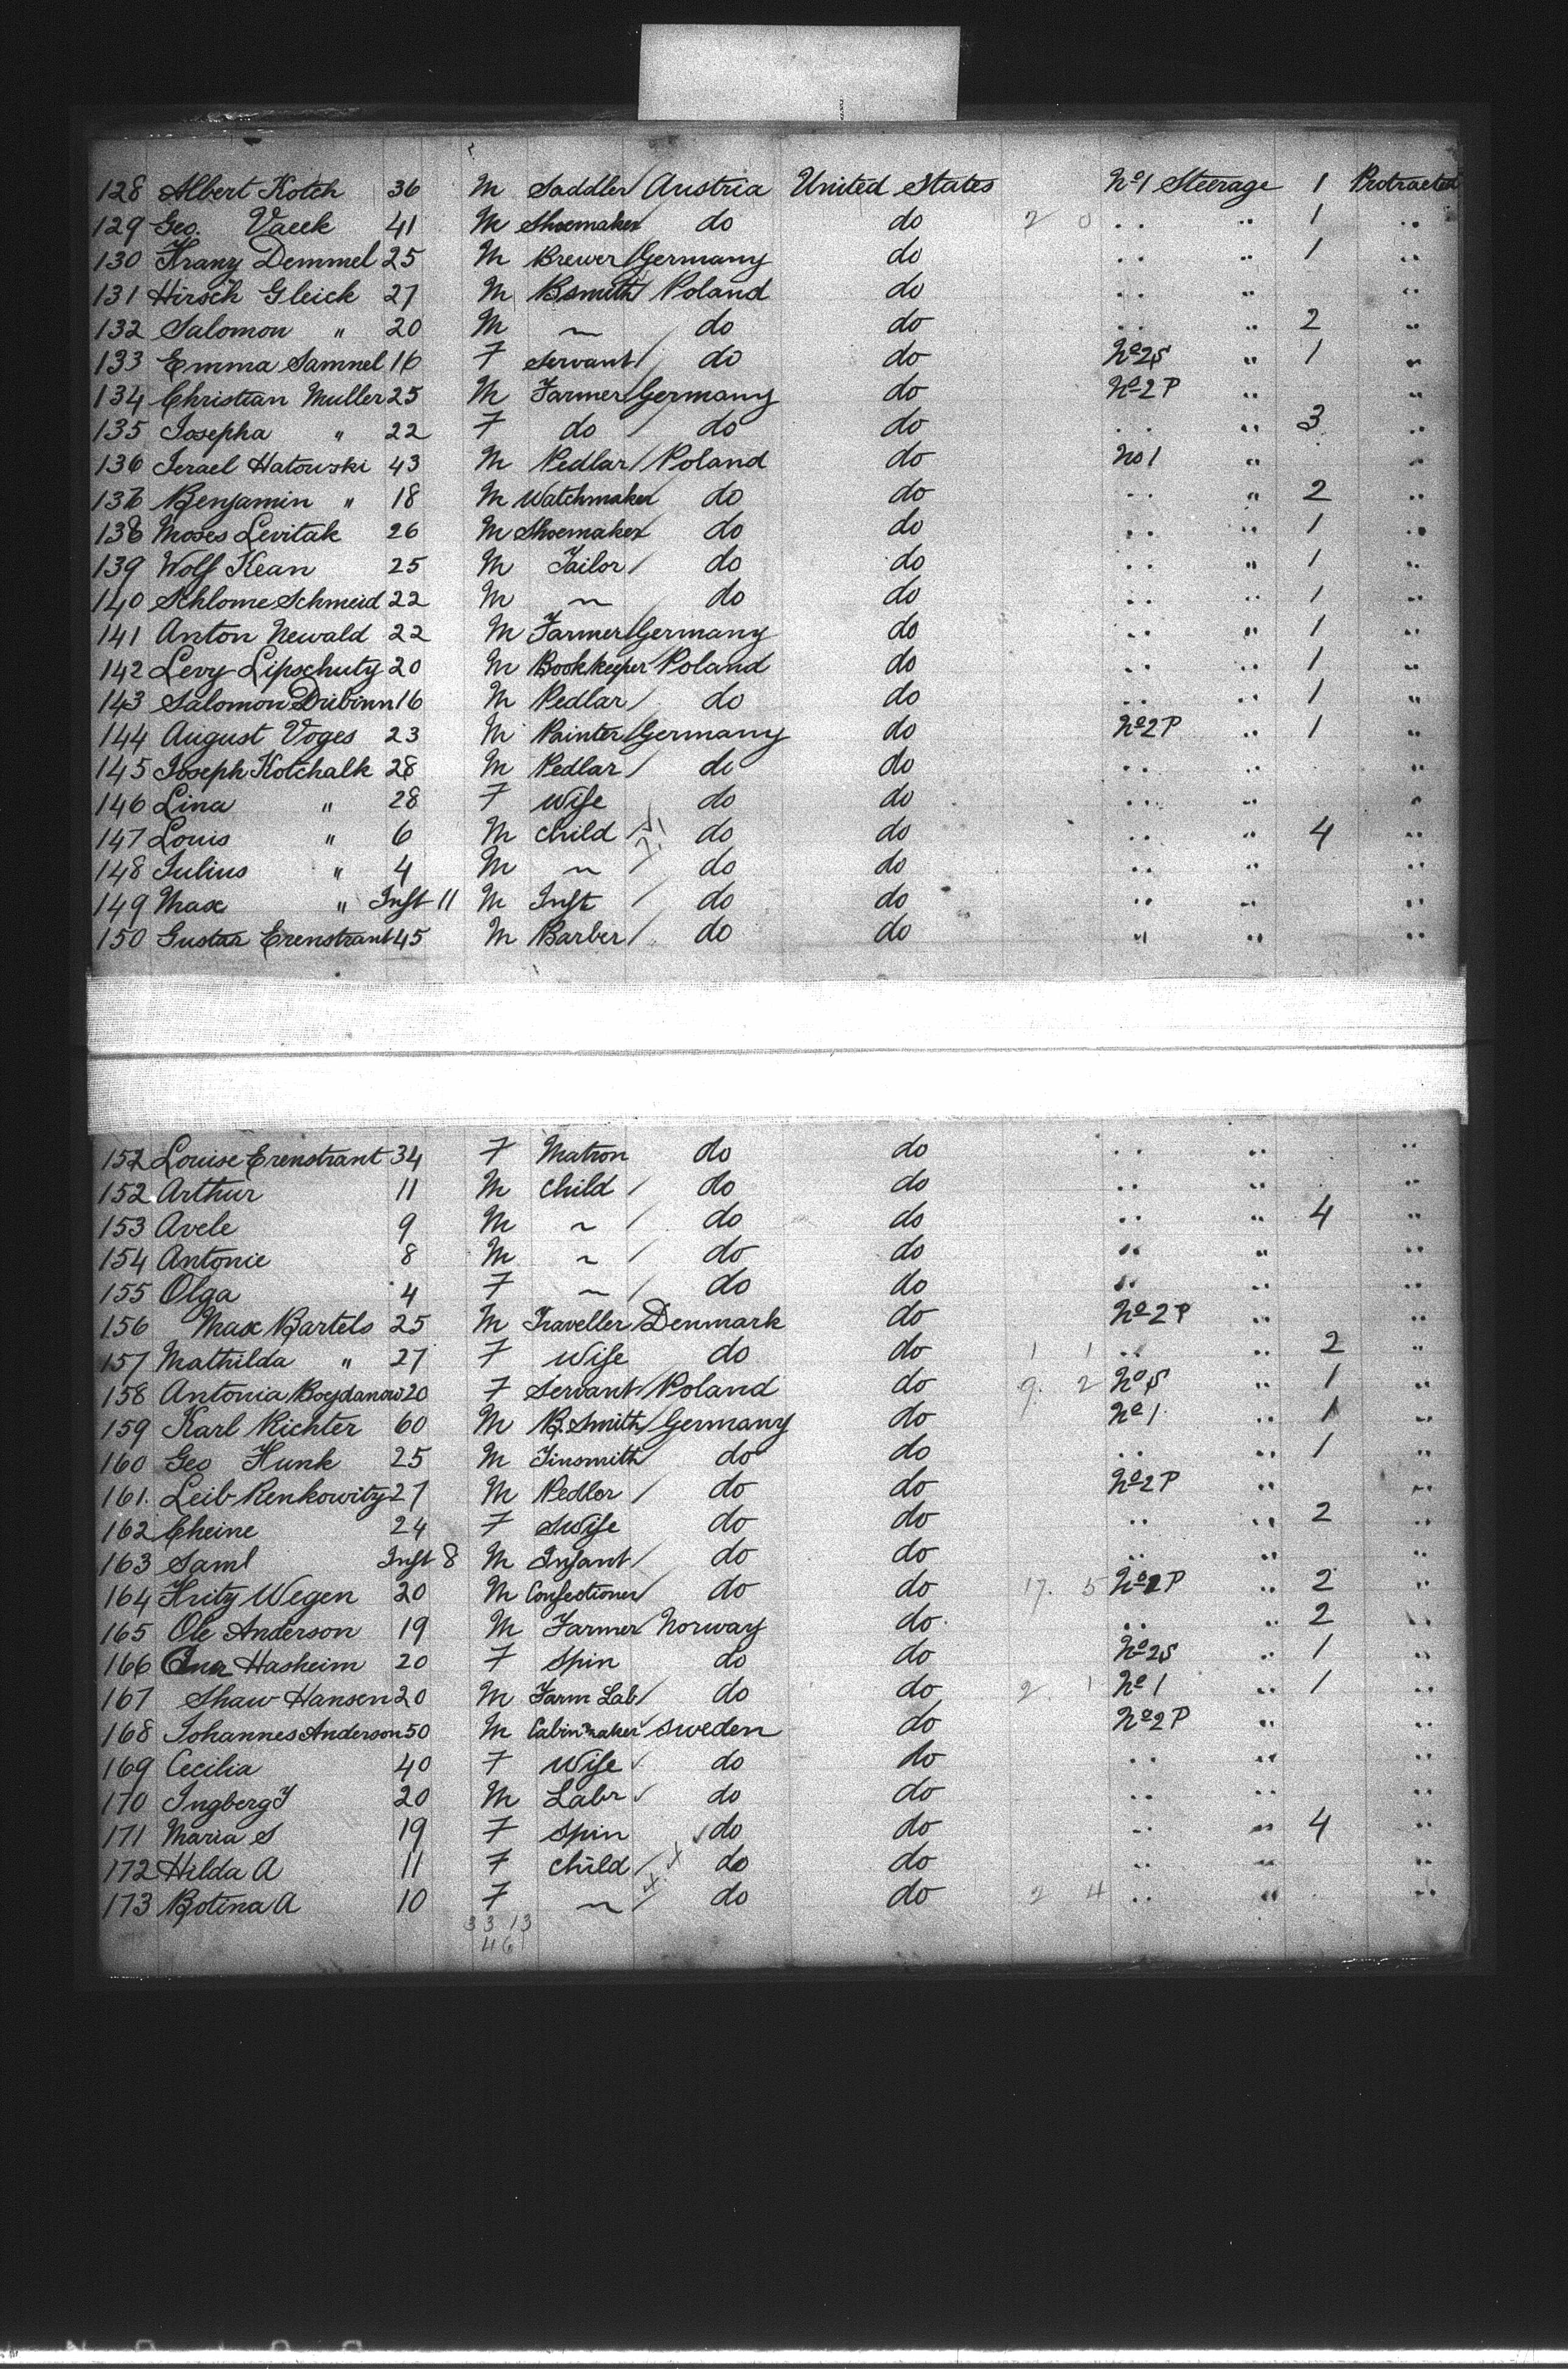 128 Albert Kotch 36 M Saddler Austria United States No 1 Steerage 1 Protracted
129 Geo. Vacek 41 M Shoemaker do do 2 0 " " 1 "
130 Franz Demmel 25 M Brewer Germany do " " 1 "
131 Hirsch Gleick 27 M Bsmith Poland do " " "
132 Salomon " 20 M ~ do do " " 2 "
133 Emma Sammel 16 F Servant do do No 2S " 1 "
134 Christian Muller 25 M Farmer Germany do No 2 P " "
135 Josepha " 22 F do do do " " 3 "
136 Israel Hatowski 43 M Pedlar Poland do No 1 " "
137 Benjamin " 18 M Watchmaker do do " " 2 "
138 Moses Levitak 26 M Shoemaker do do " " 1 "
139 Wolf Kean 25 M Tailor do do " " 1 "
140 Schlome Schmeid 22 M ~ do do " " 1 "
141 Anton Newald 22 M Farmer Germany do " " 1 "
142 Levy Lipschutz 20 M Bookkeeper Poland do " " 1 "
143 Salomon Dribinn 16 M Pedlar do do " " 1 "
144 August Voges 23 M Painter Germany do No 2 P " 1 "
145 Joseph Kotchalk 28 M Pedlar do do " " "
146 Lina " 28 F Wife do do " " "
147 Louis " 6 M Child do do " " 4 "
148 Julius " 4 M ~ do do " " "
149 Max " Inft 11 M Inft do do " " "
150 Gustar Erenstrant 45 M Barber do do " " "
152 Louise Erenstrant 34 F Matron do do " " "
152 Arthur 11 M Child do do " " "
153 Avele 9 M ~ do do " " 4 "
154 Antonie 8 M ~ do do " " "
155 Olga 4 F ~ do do " " "
156 Max Bartels 25 M Traveller Denmark do No 2 P " "
157 Mathilda " 27 F Wife do do 1 1 " " 2 "
158 Antonia Boydanow 20 F Servant Poland do 9. 2 No S " 1 "
159 Karl Richter 60 M B.Smith Germany do No 1 " 1 "
160 Geo Hunk 25 M Tinsmith do do " " 1 "
161. Leib Renkowitz 27 M Pedler do do No 2 P " "
162 Cheine 24 F Wife do do " " 2 "
163 Saml Inft 8 M Infant do do " " "
164 Fritz Wegen 20 M Confectioner do do 17. 5 No 2 P " 2 "
165 Ole Anderson 19 M Farmer Norway do " " 2 "
166 Hasheim 20 F Spin do do No 2S " 1 "
167 Shaw Hansen 20 M Farm Lab do do 2 1 No 1 " 1 "
168 Johannes Anderson 50 M Cabinmaker Sweden do No 2 P " "
169 Cecilia 40 F Wife do do " " "
170 Ingberg J 20 M Labr do do " " "
171 Maria S 19 F Spin do do " " 4 "
172 Hilda A 11 F Child do do " " "
173 Botina A 10 F ~ do do 2 4 " " "
33 13
46